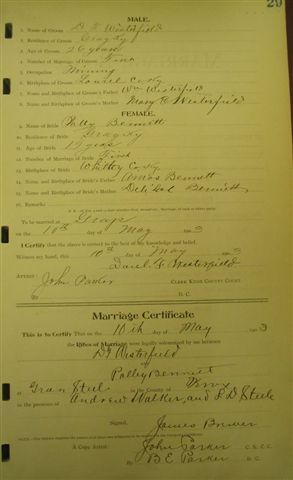 29
MALE.
2. Name of Groom D F Westerfield
3. Residence of Groom
4. Age of Groom 26 years
5. Number of Marriage of Groom First
6. Occupation Mining
7. Birthplace of Groom Laurel County
8. Name and Birthplace of Groom's Father Wm Westerfield
9. Name and Birthplace of Groom's Mother Mary E Westerfield
FEMALE.
9. Name of Bride Polly Bennett
10. Residence of Bride
11. Age of Bride 19 years
12. Number of Marriage of Bride First
13. Birthplace of Bride Whitley County
14. Name and Birthplace of Bride's Father Amos Bennett
15. Name and Birthplace of Bride's Mother Bennett
16. Remarks
To be married at Grays
on the 10th day of May 1903
I Certify that the above is correct to the best of my knowledge and belief.
Witness my hand, this 10th day of May 1903
Danl. F. Westerfield
Attest:
John Parker CLERK KNOX COUNTY COURT.
By D. C.
Marriage Certificate
This is to Certify That on the 10th day of May 1903
the Rites of Marriage were legally solemnized by me between
D F Westerfield
Polly Bennett
at Steele in the County of Knox
in the presence of Andrew Walker, and S D Steele
Signed, James Brewer
A Copy Attest: John Parker C.K.C.C.
By B E Parker D.C.